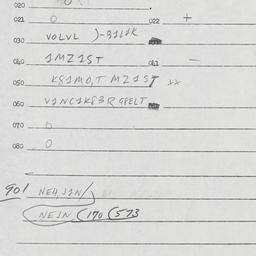 020
021 0 022 +
030 VOLVL )-B1L1K
040 1MZ1ST 041 -
050 K81MO,T MZ1ST xx
060 V1NC1K83R GPELT
070 0
080 0
901 NEH,J1N/
NEJN (170 (573